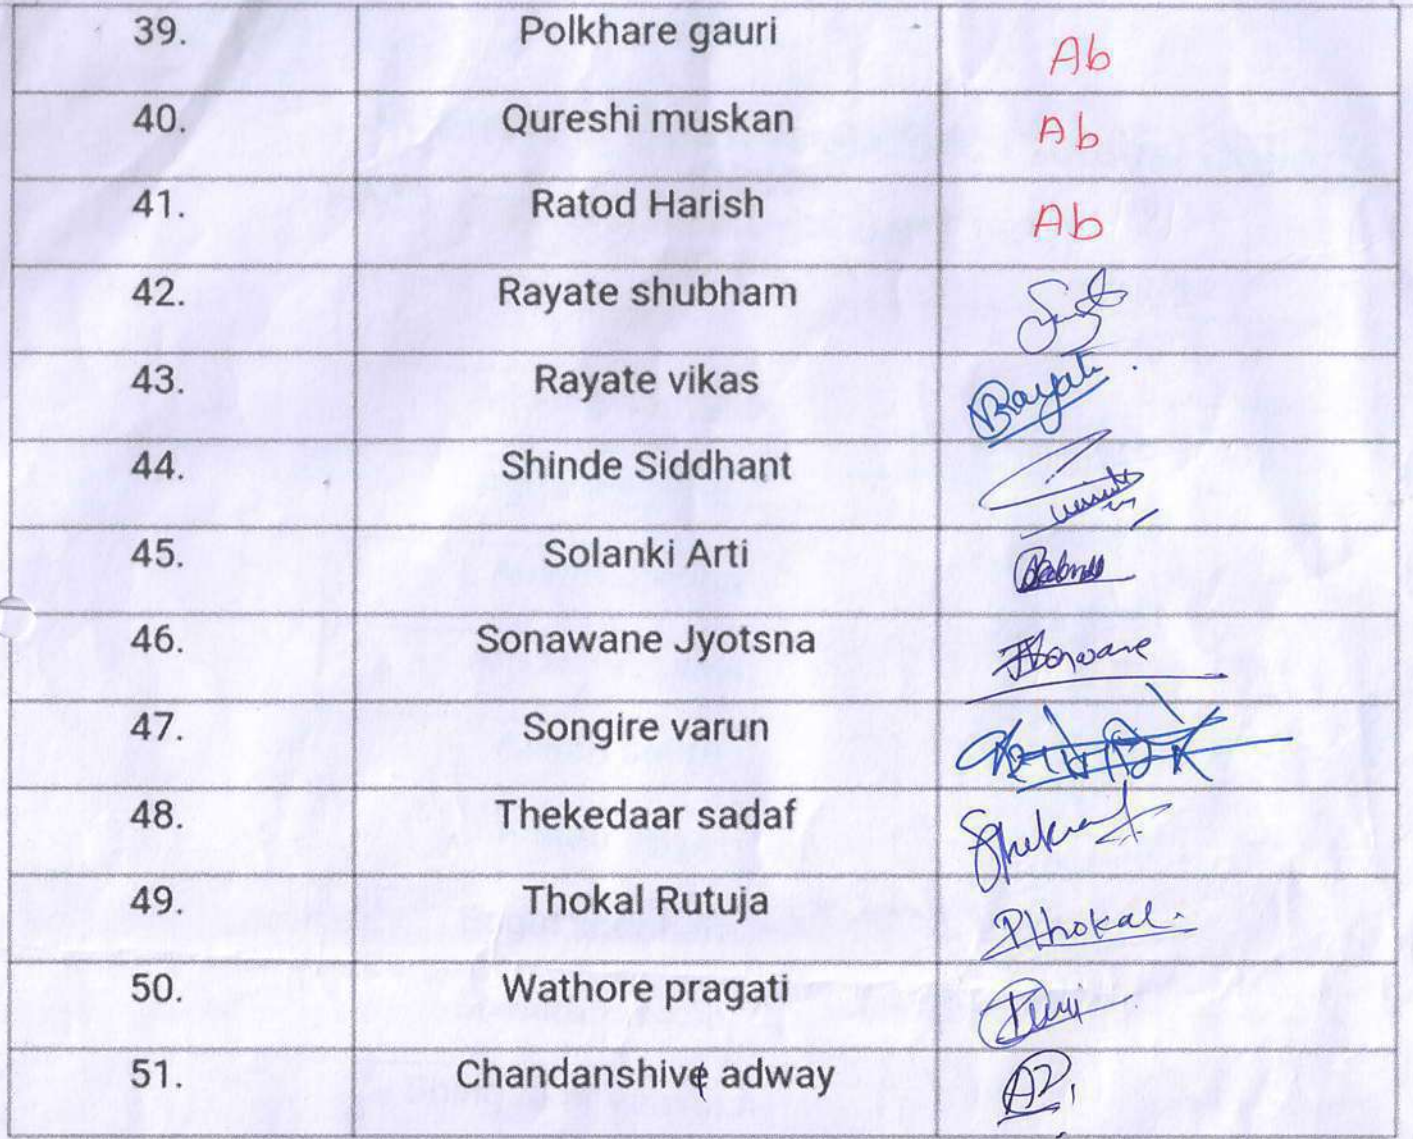 39. Polkhare gauri Ab
40. Qureshi muskan Ab
41. Ratod Harish Ab
42. Rayate shubham
43. Rayate vikas Rayate
44. Shinde Siddhant
45. Solanki Arti
46. Sonawane Jyotsna
47. Songire varun
48. Thekedaar sadaf
49. Thokal Rutuja
50. Wathore pragati
51. Chandanshive adway